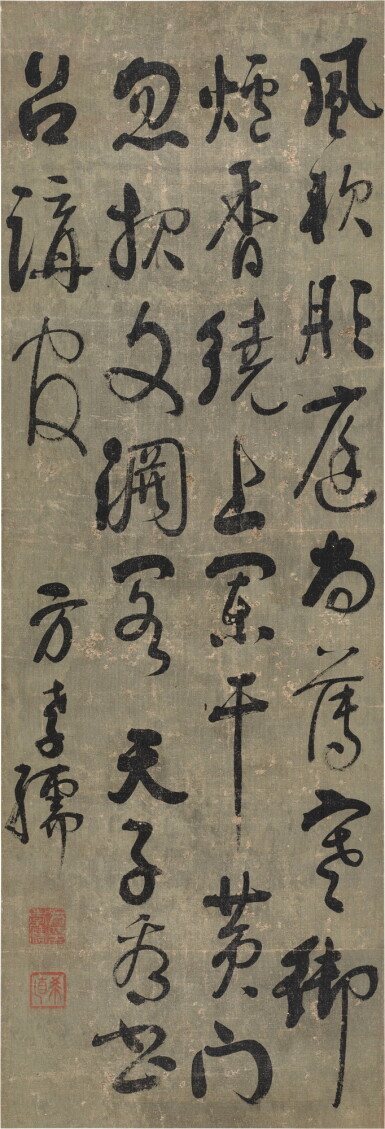 風軟彤庭尚薄寒御
爐香繞上闌干黃門
忽報文淵閣天子看書
召講官
方孝孺